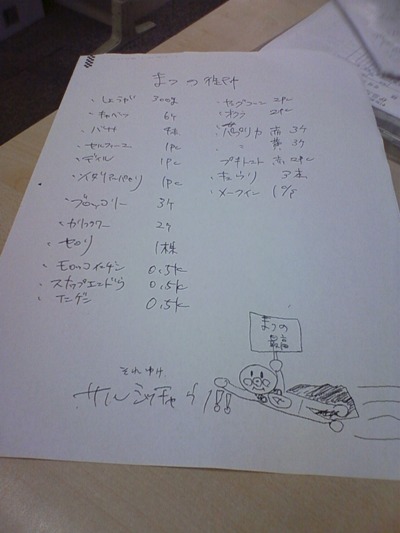 まつの
しょうが 300g
キャベツ 6ケ
バナナ 4本
セルフィーユ 1PC
ディル 1PC
イタリアンパセリ 1PC
ブロッコリー 3ケ
カリフラワー 2ケ
セロリ 1株
モロッコインゲン 0.5K
スナップエンドウ 0.5K
インゲン 0.5K
ヤングコーン 2PC
オクラ 2PC
パプリカ 赤 3ケ
〃 黄 3ケ
プチトマト 赤 2PC
キュウリ 3本
メークイン
まつの
最高
それゆけ
サルシッチャ